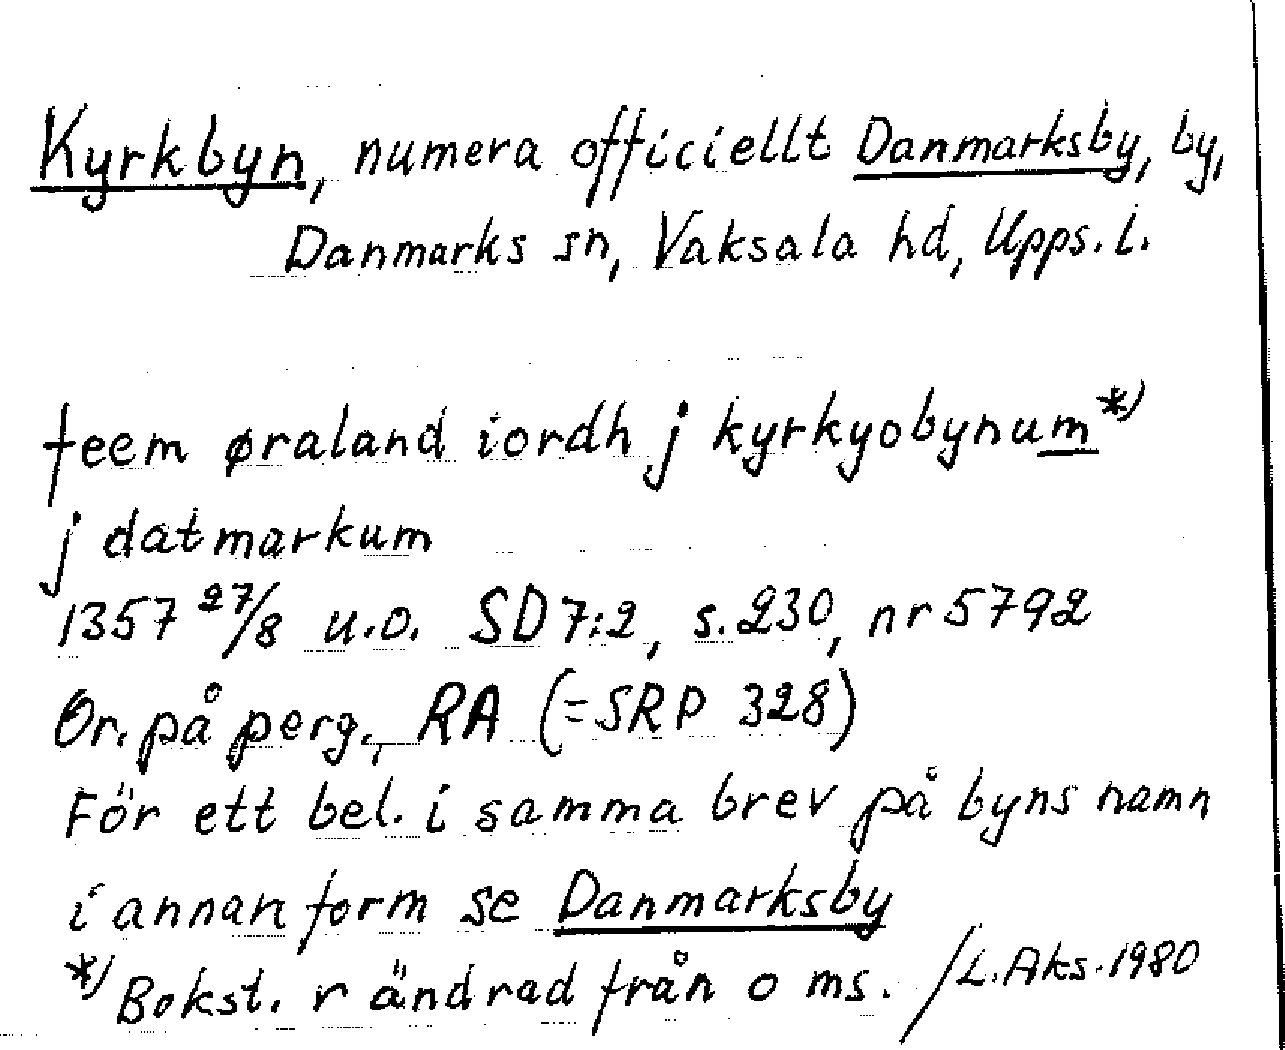 Kyrkbyn, numera officiellt Danmarksby, by,
Danmarks sn, Vaksala hd, Upps. l.
feem øraland iordh j kyrkyobynum*)
j datmarkum
1357 27/8 u.o. SD 7:2, s. 230, nr 5792
Or. på perg., RA (=SRP 328)
För ett bel. i samma brev på byns namn
i annan form se Danmarksby
*) Bokst. r ändrad från o ms. /L. Aks. 1980